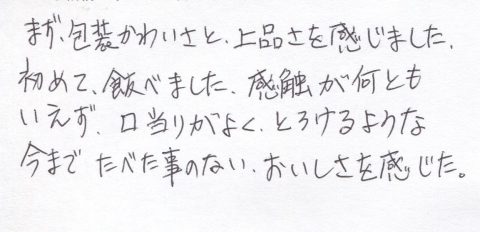 まず、包装かわいさと、上品さを感じました、
初めて、飯べました、感触が何とも
いえず、口当りがよく、とろけるような
今まで たべた事のない、おいしさを感じた。